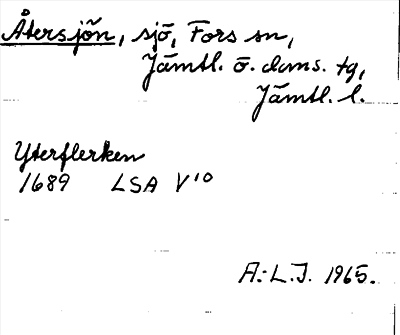 Återsjön, sjö, Fors sn,
Jämtl. ö. doms. tg,
Jämtl. l.
Yterflerken
1689 LSA V10
A.-L.J. 1965.